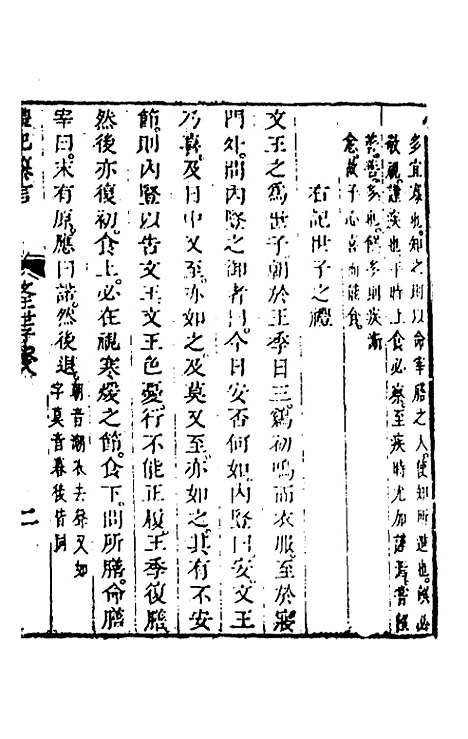 多宜處也知之則以命宰膳之人使知所進也饌必
敬視謹疾也平時上食必察至疾時尤加謹焉嘗饌
善嘗多也饌多則疾漸
愈故子心喜而能食
右記世子之禮
文王之為世子朝於王季日三雞初鳴而衣服至於寢
門外問內豎之御者曰今日安否何如內豎曰安文王
乃喜及日中又至亦如之及莫又至亦如之其有不安
節則內豎以告文王文王色憂行不能正履王季復膳
然後亦復初食上必在視寒煖之節食下問所膳命膳
宰曰末有原應曰諾然後退
朝音潮衣去聲又如
字莫音暮後皆同
禮記纂言
文王世子第八
二